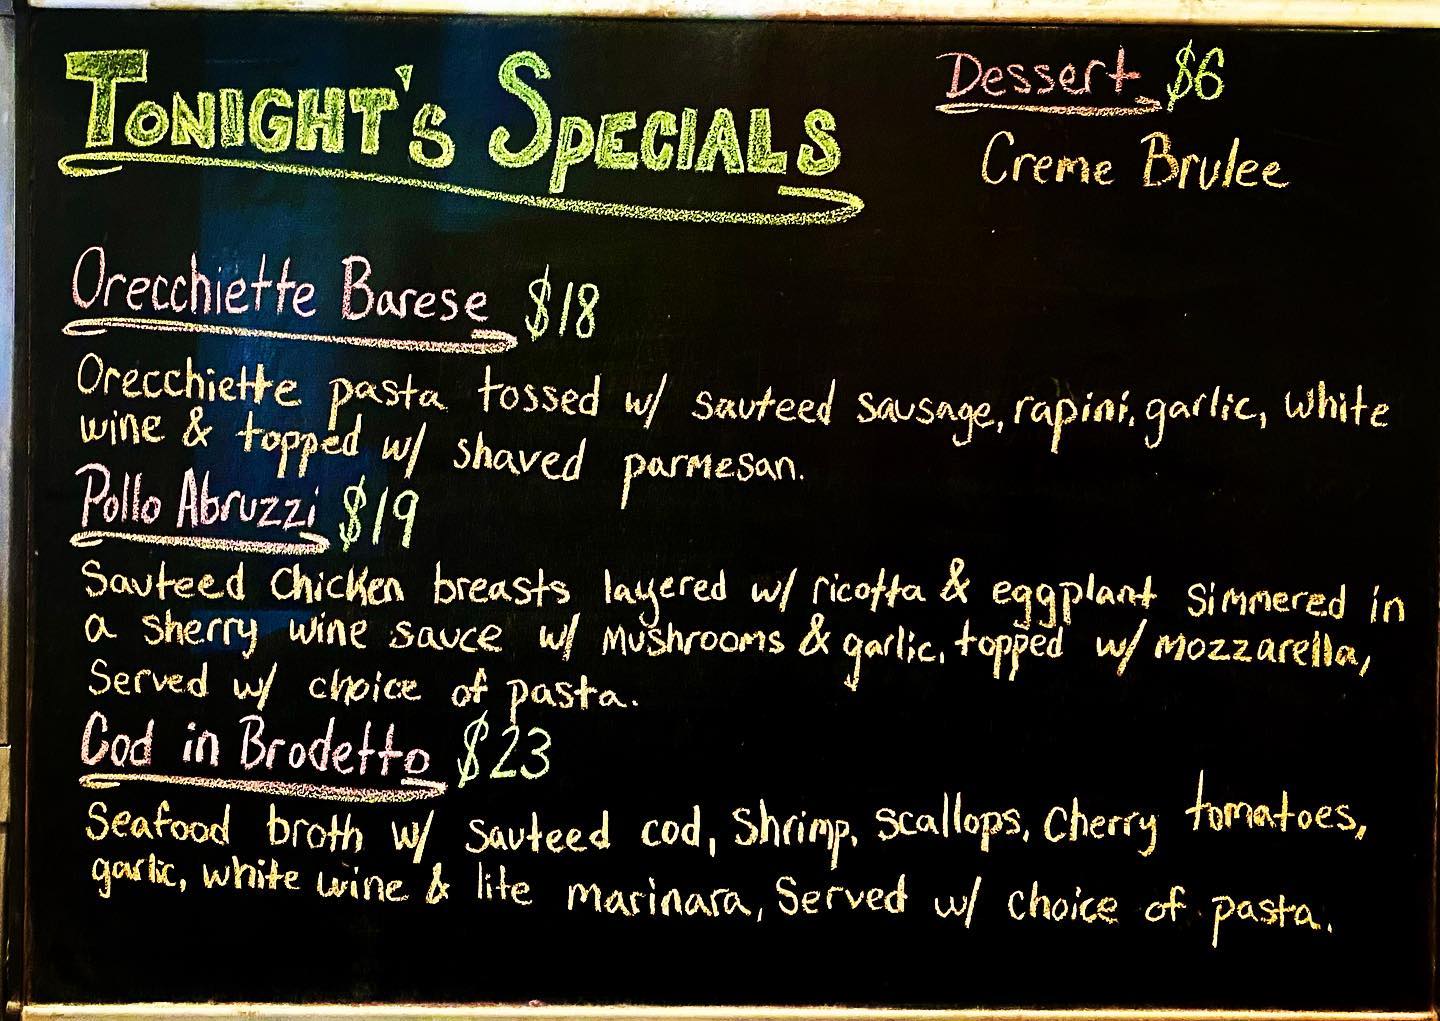 TONIGHT'S SPECIALS
Dessert $6
Creme Brulee
Orecchiette Barese $18
Orecchiette pasta tossed w/ sauteed sausage, rapini, garlic, white
wine & topped w/ shaved parmesan.
Pollo Abruzzi $19
Sauteed Chicken breasts layered w/ ricotta & eggplant Simmered in
a sherry wine sauce w/ mushrooms & garlic, topped w/ mozzarella,
Served w/ choice of pasta.
Cod in Brodetto $23
Seafood broth w/ sauteed cod, shrimp, scallops, Cherry tomatoes,
garlic, white wine & lite marinara, Served w/ choice of pasta.